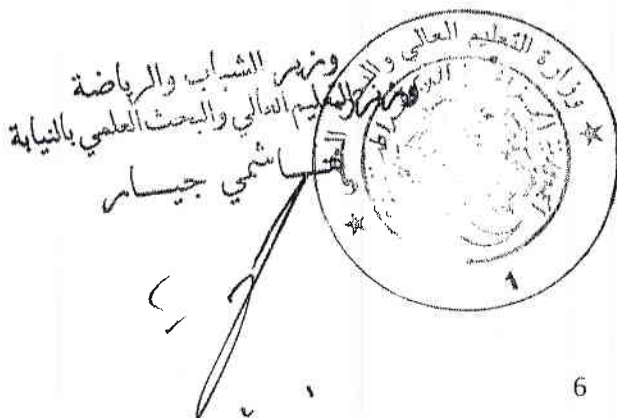 وزير الشباب والرياضة
وزير التعليم العالي والبحث العلمي بالنيابة
الهاشمي جيار
وزارة التعليم العالي والبحث العلمي
1
6